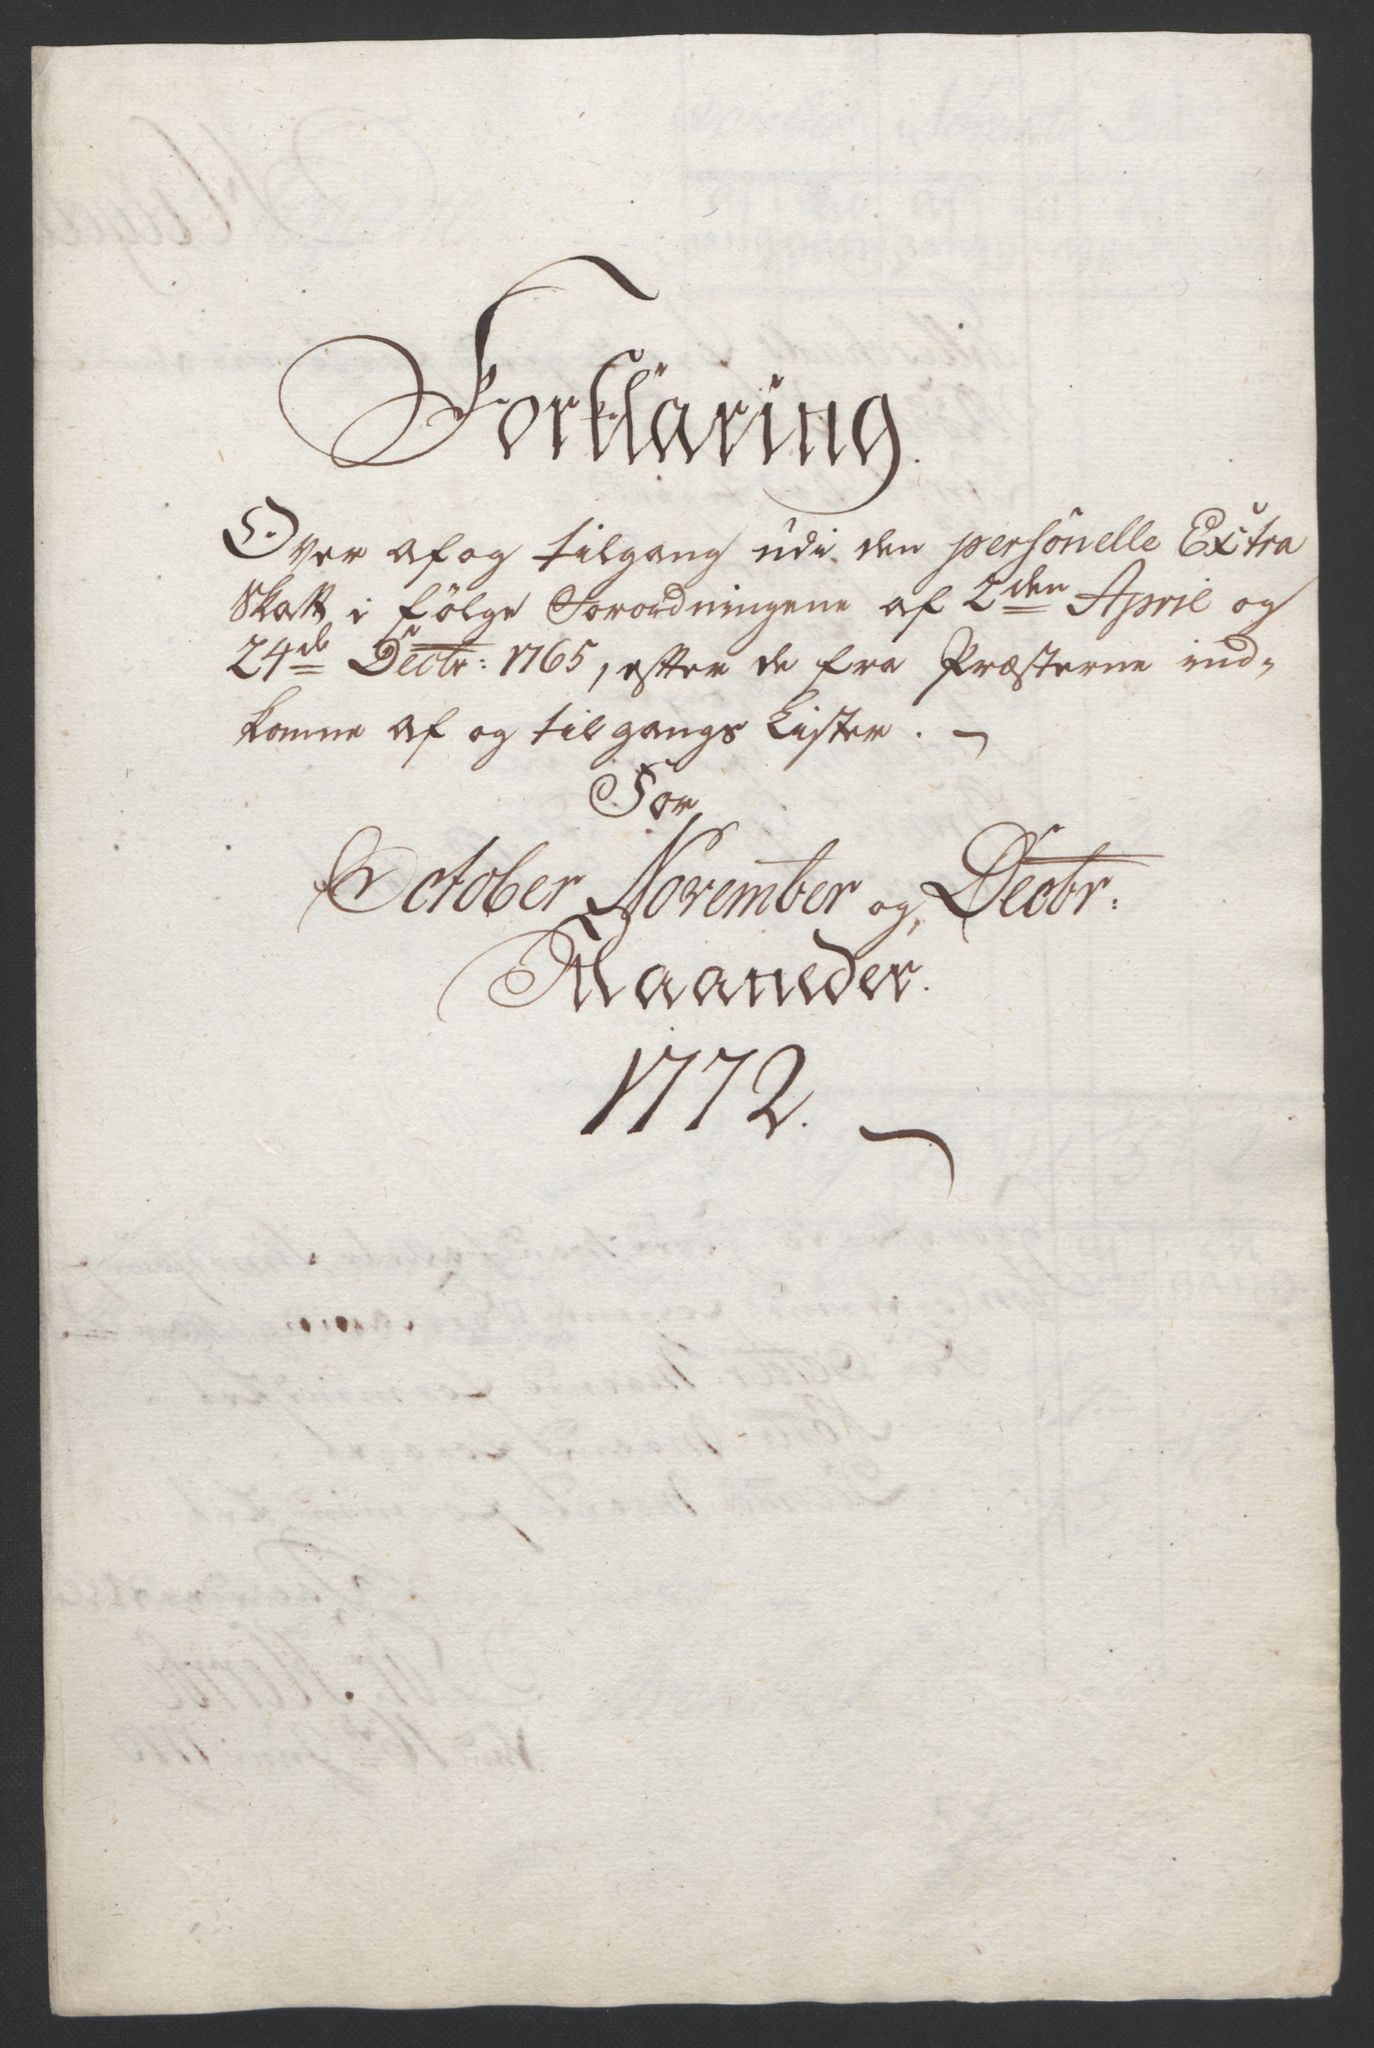 Forklaring.
Over af og tilgang udi den personelle Extra
Skatt i følge Forordningene af 2den April og
24de Dectr: 1765, efter de fra Præsterne ind-
komne af og tilgangs Lister.
For
October November og Dectr:
Maaneder.
1772.